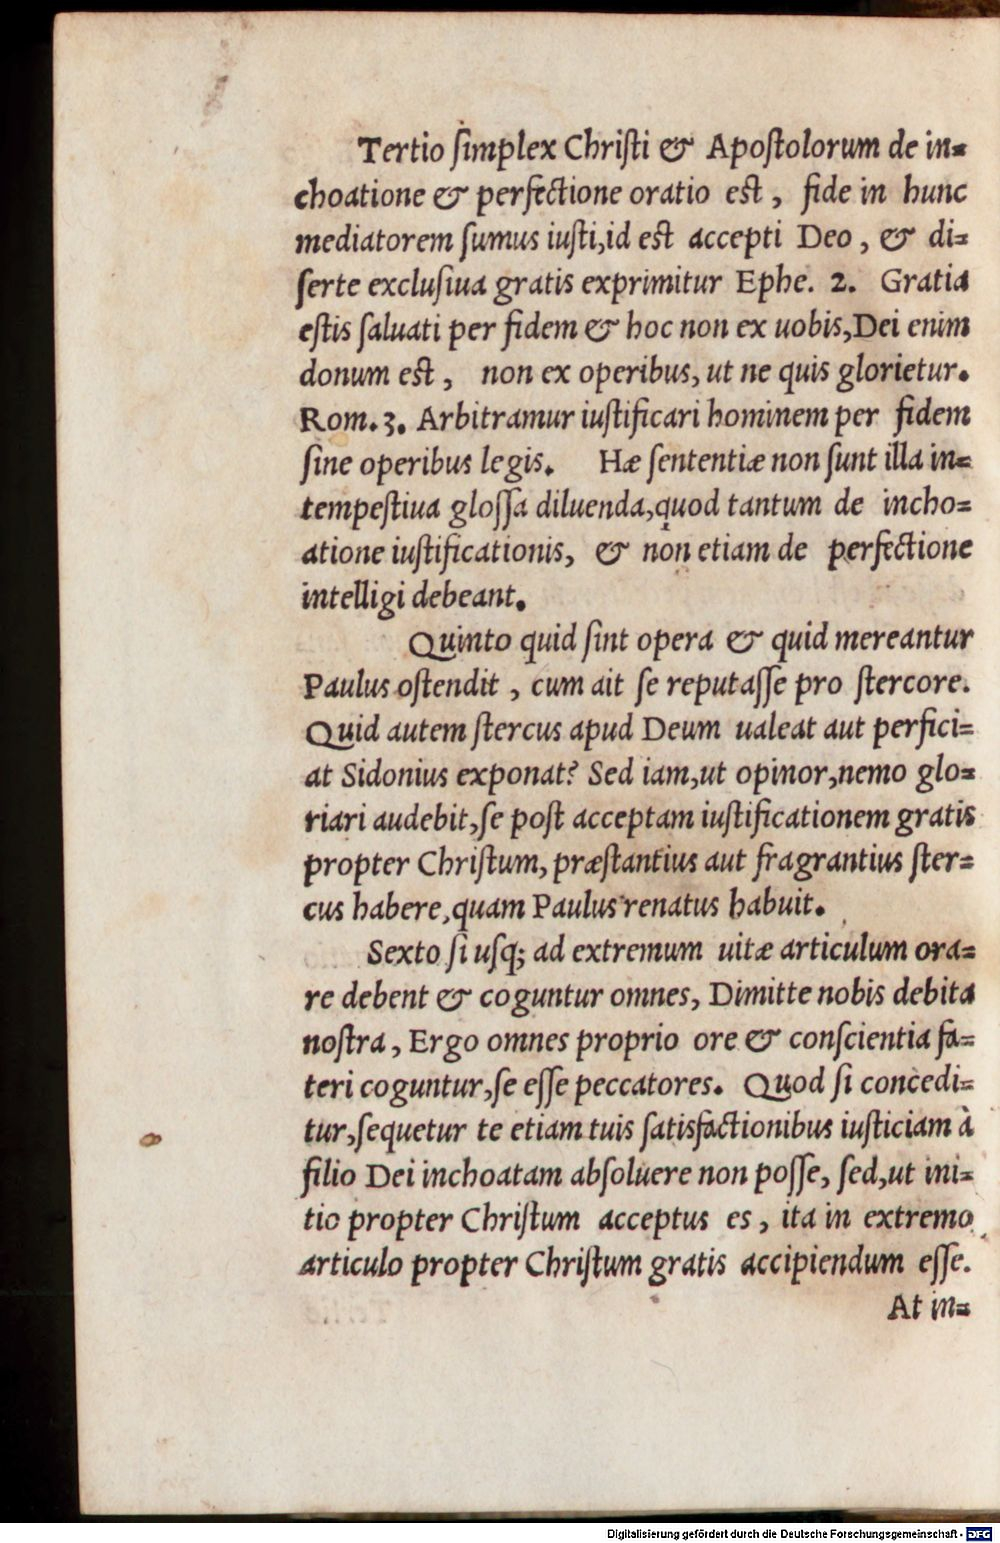 Tertio ſimplex Chriſti & Apoſtolorum de in⸗
choatione & perfectione oratio eſt, fide in hunc
mediatorem ſumus iuſti,id eſt accepti Deo, & di⸗
ſerte excluſiua gratis exprimitur Ephe. 2. Gratia
eſtis ſaluati per fidem & hoc non ex uobis,Dei enim
donum eſt, non ex operibus, ut ne quis glorietur.
Rom.3. Arbitramur iuſtificari hominem per fidem
ſine operibus legis. Hæ ſententiæ non ſunt illa in⸗
tempeſtiua gloſſa diluenda,quod tantum de incho⸗
atione iuſtificationis, & non etiam de perfectione
intelligi debeant.
Quinto quid ſint opera & quid mereantur
Paulus oſtendit, cum ait ſe reputaſſe pro ſtercore.
Quid autem ſtercus apud Deum ualeat aut perfici⸗
at Sidonius exponat? Sed iam,ut opinor,nemo glo⸗
riari audebit,ſe poſt acceptam iuſtificationem gratis
propter Chriſtum, præſtantius aut fragrantius ſter⸗
cus habere,quam Paulus renatus habuit.
Sexto ſi uſq; ad extremum uitæ articulum ora⸗
re debent & coguntur omnes, Dimitte nobis debita
noſtra, Ergo omnes proprio ore & conſcientia fa⸗
teri coguntur,ſe eſſe peccatores. Quod ſi concedi⸗
tur,ſequetur te etiam tuis ſatisfactionibus iuſticiam à
filio Dei inchoatam abſoluere non poſſe, ſed,ut ini⸗
tio propter Chriſtum acceptus es, ita in extremo
articulo propter Chriſtum gratis accipiendum eſſe.
At in⸗
Digitalisierung gefördert durch die Deutsche Forschungsgemeinschaft - DFG